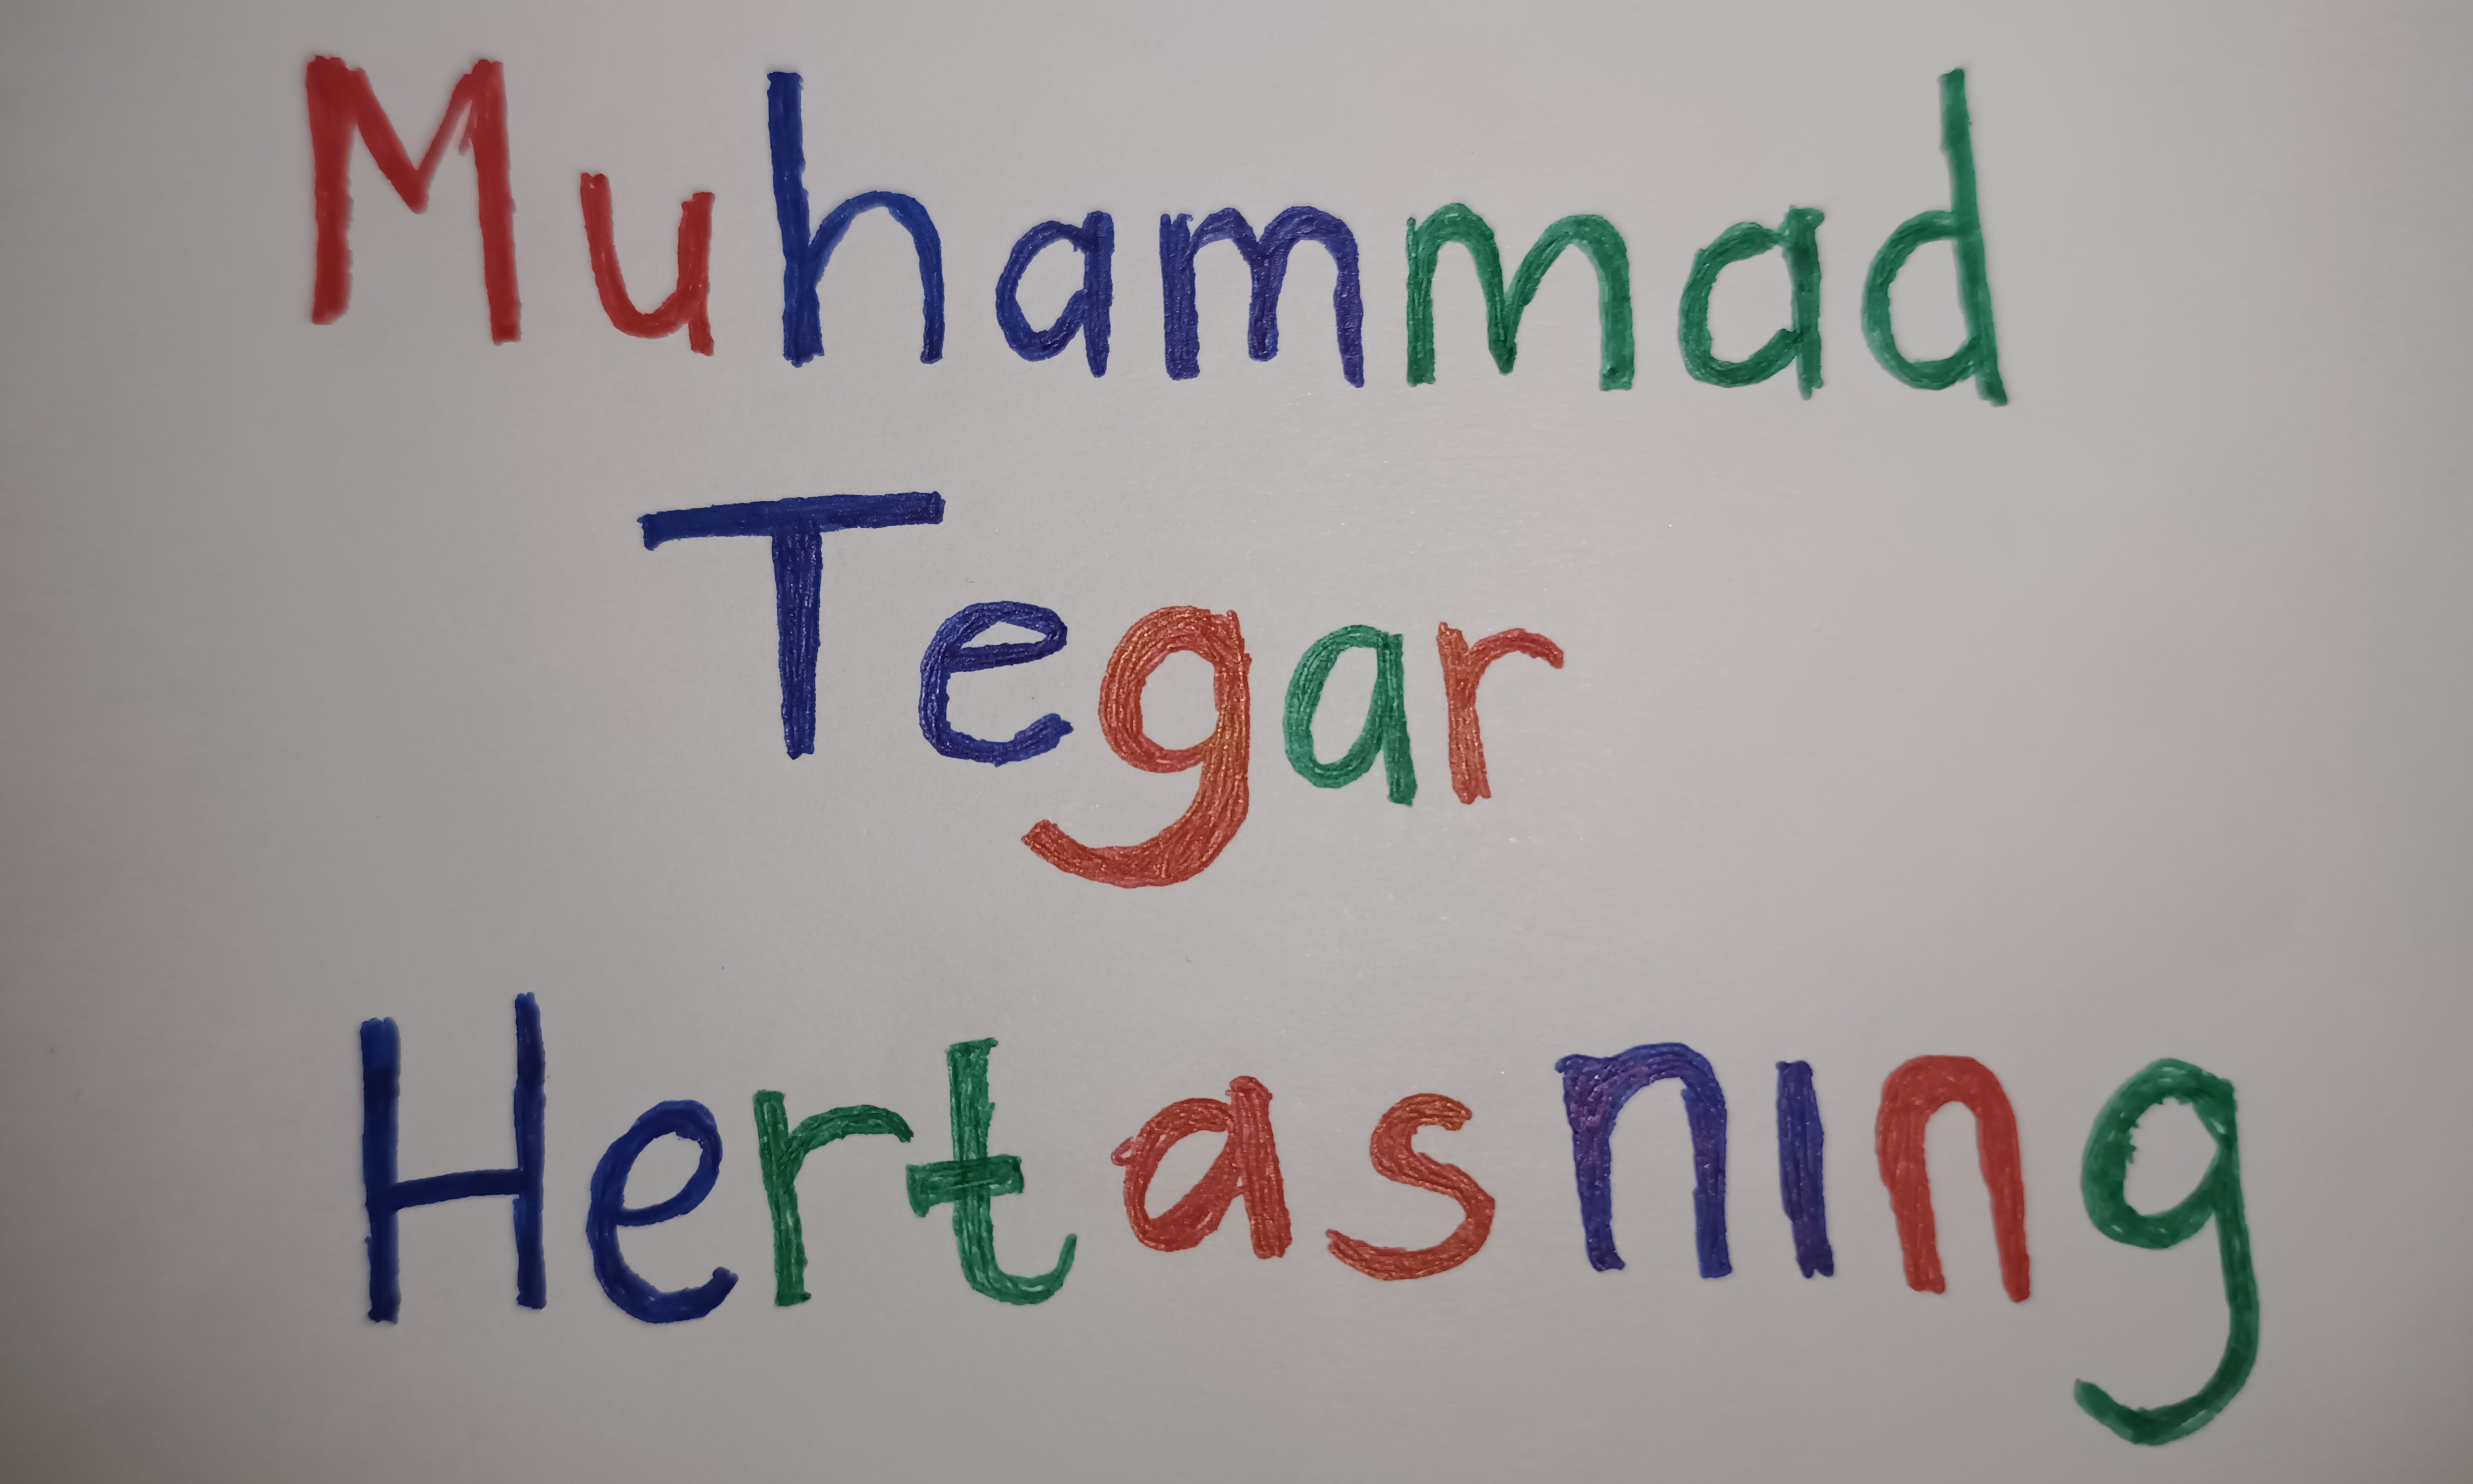 Muhammad
Tegar
Hertasnıng